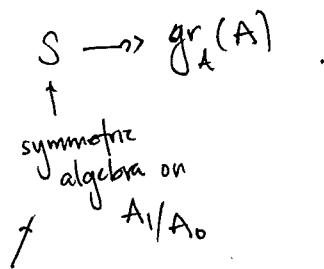 S ↠ gr_A(A) .
↑
symmetric
algebra on
A₁/A₀
↗